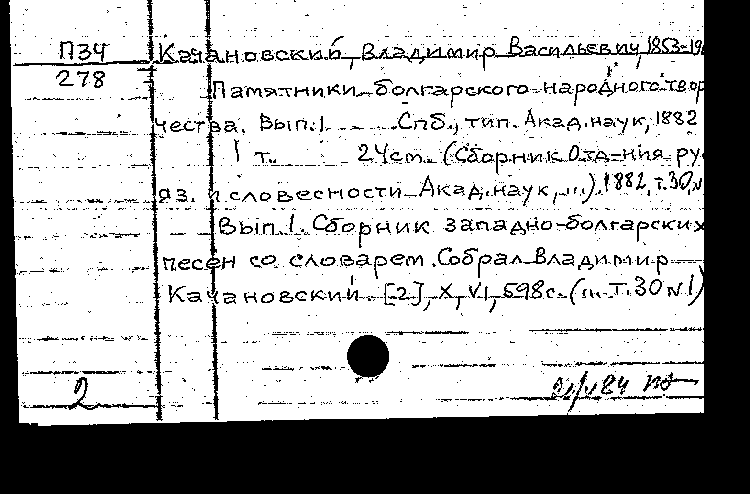 П34 Качановский, Владимир Васильевич, 1853-19
278 Памятники болгарского народного твор
чества. Вып.1 Спб., тип. Акад. наук, 1882
1 т. 24см. (Сборник Отд-ния ру
яз. и словесности Акад. наук, ...). 1882, т.30, №
Вып.1. Сборник западно-болгарских
песен со словарем. Собрал Владимир
Качановский. [2], X, VI, 598с. (... Т.30 №1)
2